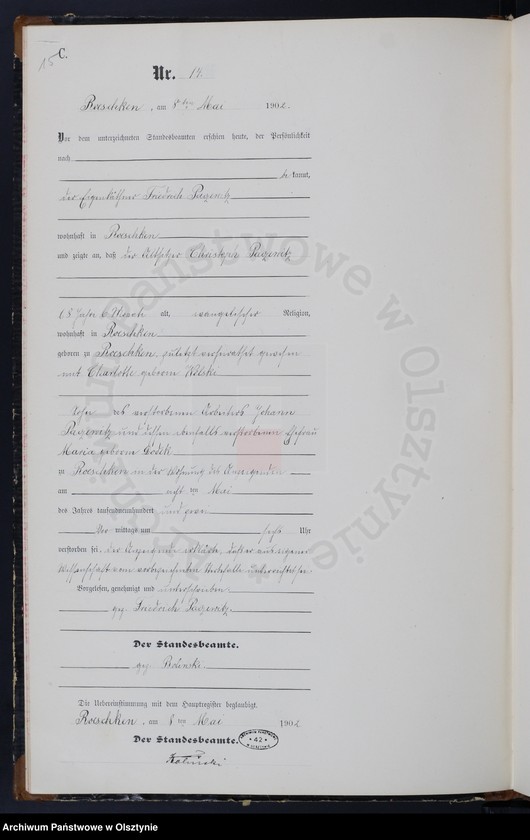 15
C.
Nr. 14.
Roeschken, am 8ten Mai 1902.
Vor dem unterzeichneten Standesbeamten erschien heute, der Persönlichkeit
nach
be kannt,
der Eigenkäthner Friedrich
wohnhaft in Roeschken
und zeigte an, daß der Altsitzer Christoph
65 Jahre 6 Monate alt, evangelischer Religion,
wohnhaft in Roeschken
geboren zu Roeschken, zuletzt verheirathet gewesen
mit Charlotte geborene
Sohn des verstorbenen Johann
und dessen ebenfalls verstorbenen Ehefrau
Maria geborene
zu Roeschken in der Wohnung des Anzeigenden
am acht ten Mai
des Jahres tausendneunhundert und zwei
Vor mittags um sechs Uhr
verstorben sei. Der Anzeigende erklärte, daß er aus eigener
Wissenschaft vom vorbezeichneten Sterbefalle unterrichtet sei.
Vorgelesen, genehmigt und unterschrieben
gez. Friedrich
Der Standesbeamte.
gez.
Die Uebereinstimmung mit dem Hauptregister beglaubigt.
Roeschken, am 8 ten Mai 1902.
Der Standesbeamte.
ARCHIWUM PAŃSTWOWE
* 42 *
W OLSZTYNIE
Archiwum Państwowe w Olsztynie